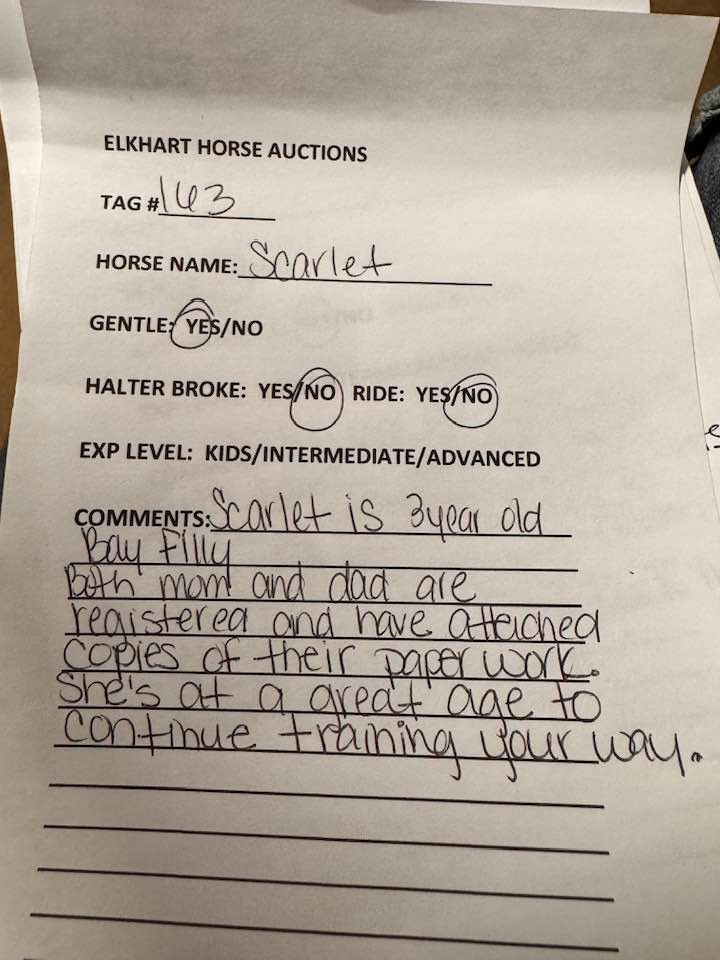 ELKHART HORSE AUCTIONS
TAG # 163
HORSE NAME: Scarlet
GENTLE: YES/NO
HALTER BROKE: YES/NO RIDE: YES/NO
EXP LEVEL: KIDS/INTERMEDIATE/ADVANCED
COMMENTS: Scarlet is 3 year old
Bay Filly
Both mom and dad are
registered and have attached
copies of their paper work.
She's at a great age to
continue training your way.